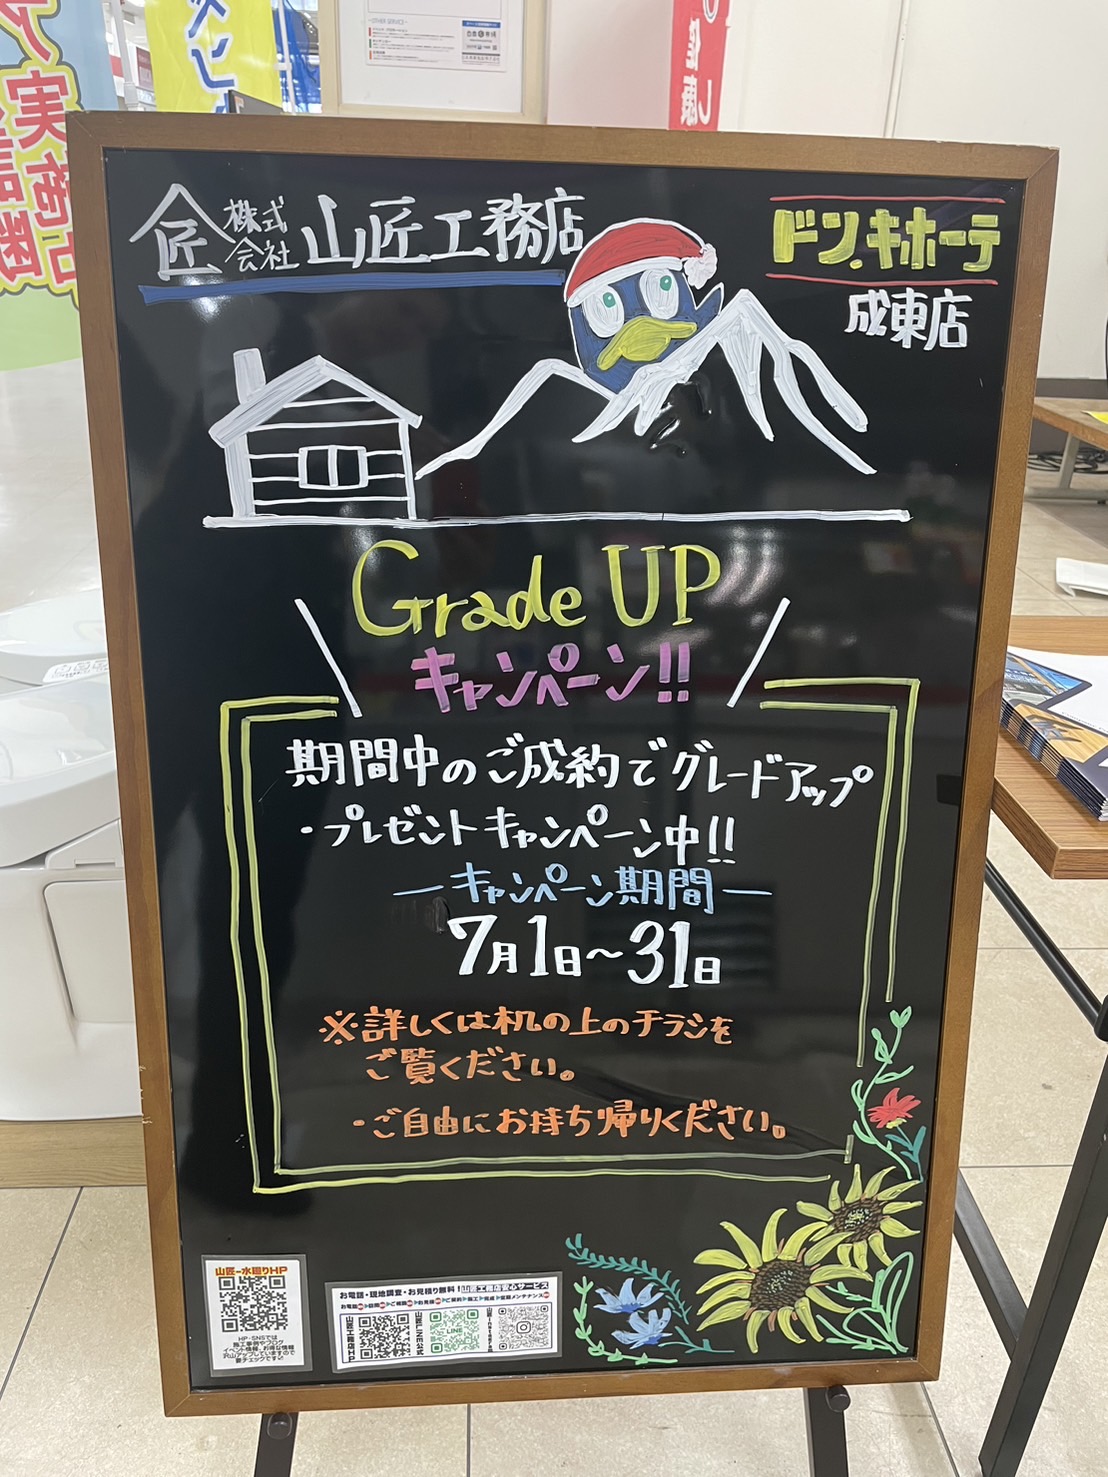 匠
株式
会社
山匠工務店
ドン.キホーテ
成東店
Grade UP
キャンペーン!!
期間中のご成約でグレードアップ
・プレゼントキャンペーン中!!
ーキャンペーン期間ー
7月1日~31日
※詳しくは机の上のチラシを
ご覧ください。
・ご自由にお持ち帰りください。
山匠-水廻りHP
HP・SNSでは
施工事例やブログ
イベント情報、お得な情報
沢山アップしていますので
要チェックです!
お電話・現地調査・お見積り無料!山匠工務店安心サービス
山匠工務店HP
LINE
し健康